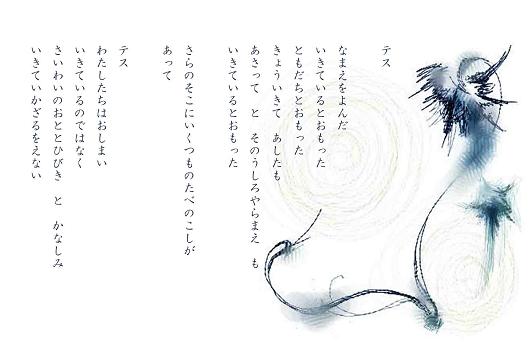 テス
なまえをよんだ
いきているとおもった
ともだちとおもった
きょういきて　あしたも
あさって　と　そのうしろやらまえ　も
いきているとおもった
さらのそこにいくつものたべのこしが
あって
テス
わたしたちはおしまい
いきているのではなく
さいわいのおととひびき　と　かなしみ
いきていかざるをえない